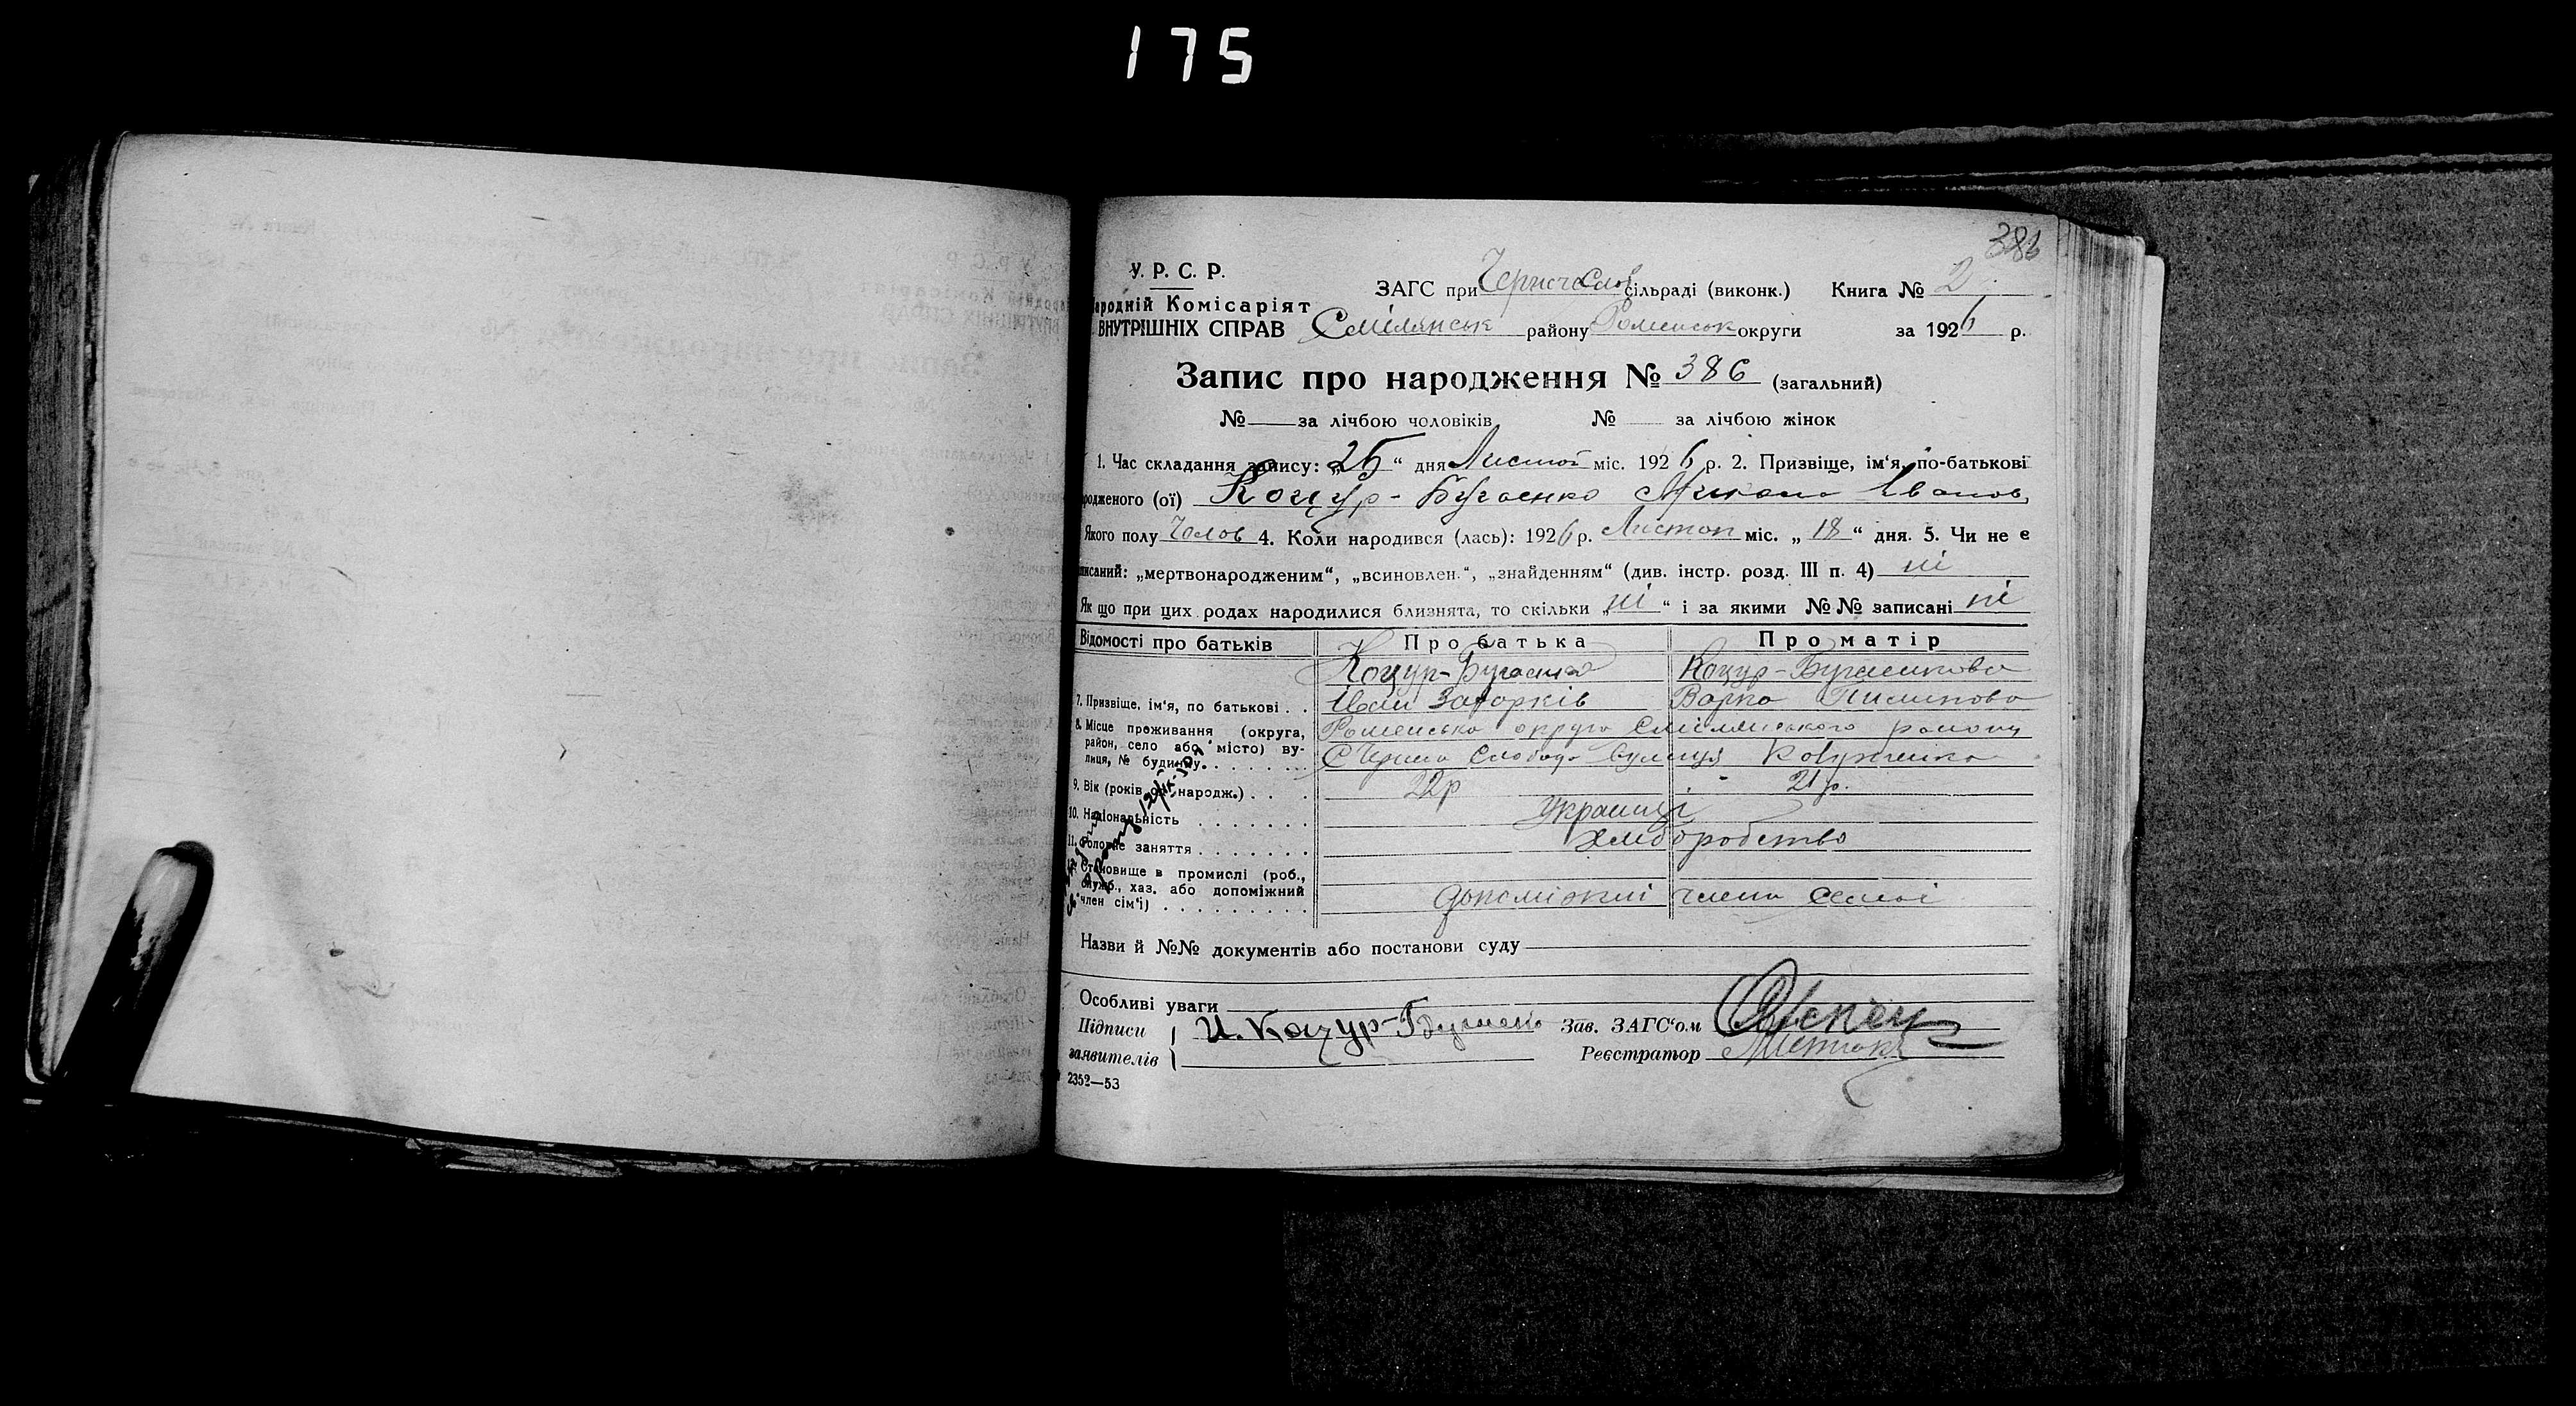 175
386
У. Р. С. Р.
ЗАГС при Черночасло сільраді (виконк.) Книга № 2
ародній Комісаріят
ВНУТРІШНІХ СПРАВ Смілянськ району Роменськ округи за 1926 р.
Запис про народження № 386 (загальний)
№ — за лічбою чоловіків № — за лічбою жінок
1. Час складання запису: „25“ дня Листоп міс. 1926 р. 2. Призвіще, ім‘я, по-батькові
родженого (ої) Коцур-Бугаєнко Микола Іванов
Якого полу Чолов 4. Коли народився (лась): 1926 р. Листоп міс. „18“ дня. 5. Чи не є
писаний: „мертвонародженим“, „всиновлен.“, „знайденням“ (див. інстр. розд. III п. 4) ні
Як що при цих родах народилися близнята, то скільки „ні“ і за якими №№ записані ні
Відомості про батьків Про батька Про матір
Коцур-Бугаєнко Коцур-Бугаєнкова
7. Призвіще, ім‘я, по батькові . . Іван Варка Пилипова
8. Місце проживання (округа, Роменська округа Смілянського району
район, село або місто) ву-
лиця, № будинку. С Черна Слобода вулиця
9. Вік (років від народж.) . . . 22р 21р.
10. Національність Українці
11. Головне заняття Хліборобство
12. Становище в промислі (роб.,
служб., хаз. або допоміжний
член сім‘ї) допоміжний члени семьї
Назви й №№ документів або постанови суду
Особливі уваги
Підписи И. Коцур-Бугаень Зав. ЗАГС‘ом
заявителів Реєстратор
2352—53